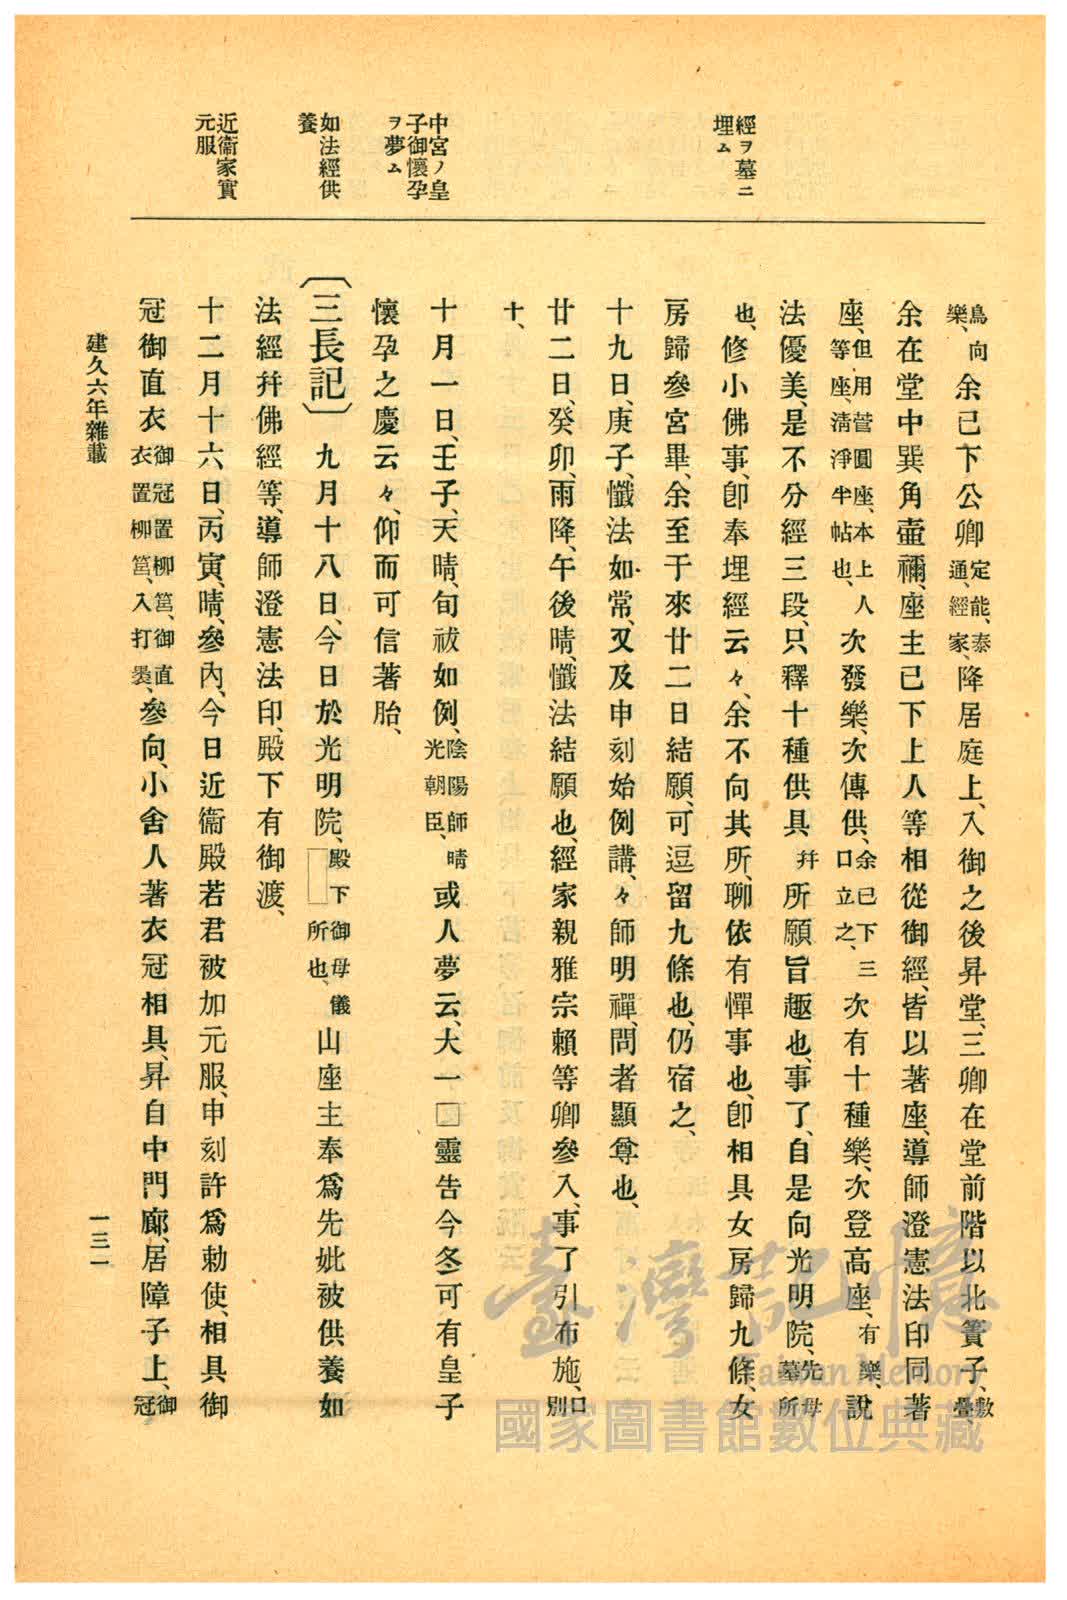 經ヲ墓ニ
埋ム
中宮ノ皇
子御懷孕
ヲ夢ム
如法經供
養
近衞家實
元服
鳥向
樂、
余已下公卿
定能、泰
通、經家、
降居庭上、入御之後昇堂、三卿在堂前階以北簀子、
敷
疊、
余在堂中巽角壷禰、座主已下上人等相從御經、皆以著座、導師澄憲法印同著
座、
但用菅圓座、本上人
等座、淸淨半帖也、
次發樂、次傳供、
余已下三
口立之、
次有十種樂、次登高座、
有
樂、
說
法優美、是不分經三段、只釋十種供具
幷
所願旨趣也、事了、自是向光明院、
先母
墓所
也、修小佛事、卽奉埋經云々、余不向其所、聊依有憚事也、卽相具女房歸九條、女
房歸參宮畢、余至于來廿二日結願、可逗留九條也、仍宿之、
十九日、庚子、懺法如常、又及申刻始例講、々師明禪、問者顯尊也、
廿二日、癸卯、雨降、午後晴、懺法結願也、經家親雅宗賴等卿參入、事了引布施、
口別
十、
十月一日、壬子、天晴、旬祓如例、
陰陽師晴
光朝臣、
或人夢云、大一□靈告今冬可有皇子
懷孕之慶云々、仰而可信著胎、
〔三長記〕 九月十八日、今日於光明院、
殿下御母儀
□所也、
山座主奉爲先妣被供養如
法經幷佛經等、導師澄憲法印、殿下有御渡、
十二月十六日、丙寅、晴、參內、今日近衞殿若君被加元服、申刻許爲勅使、相具御
冠御直衣
御冠置柳筥、御直
衣置柳筥、入打褁、
參向、小舍人著衣冠相具、昇自中門廊、居障子上、
御
冠
建久六年雜載
一三一
臺灣記憶
Taiwan Memory
國家圖書館數位典藏